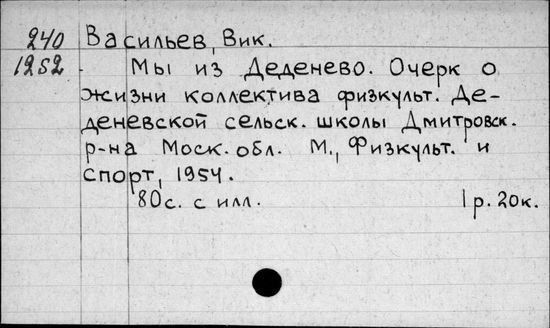 240 Васильев, Вик.
1252 Мы из Деденево. Очерк о
жизни коллектива физкульт. Де-
деневской сельск. школы Дмитровск.
р-на Моск. обл. М., Физкульт. и
спорт, 1954.
80с. с илл. 1р. 20к.